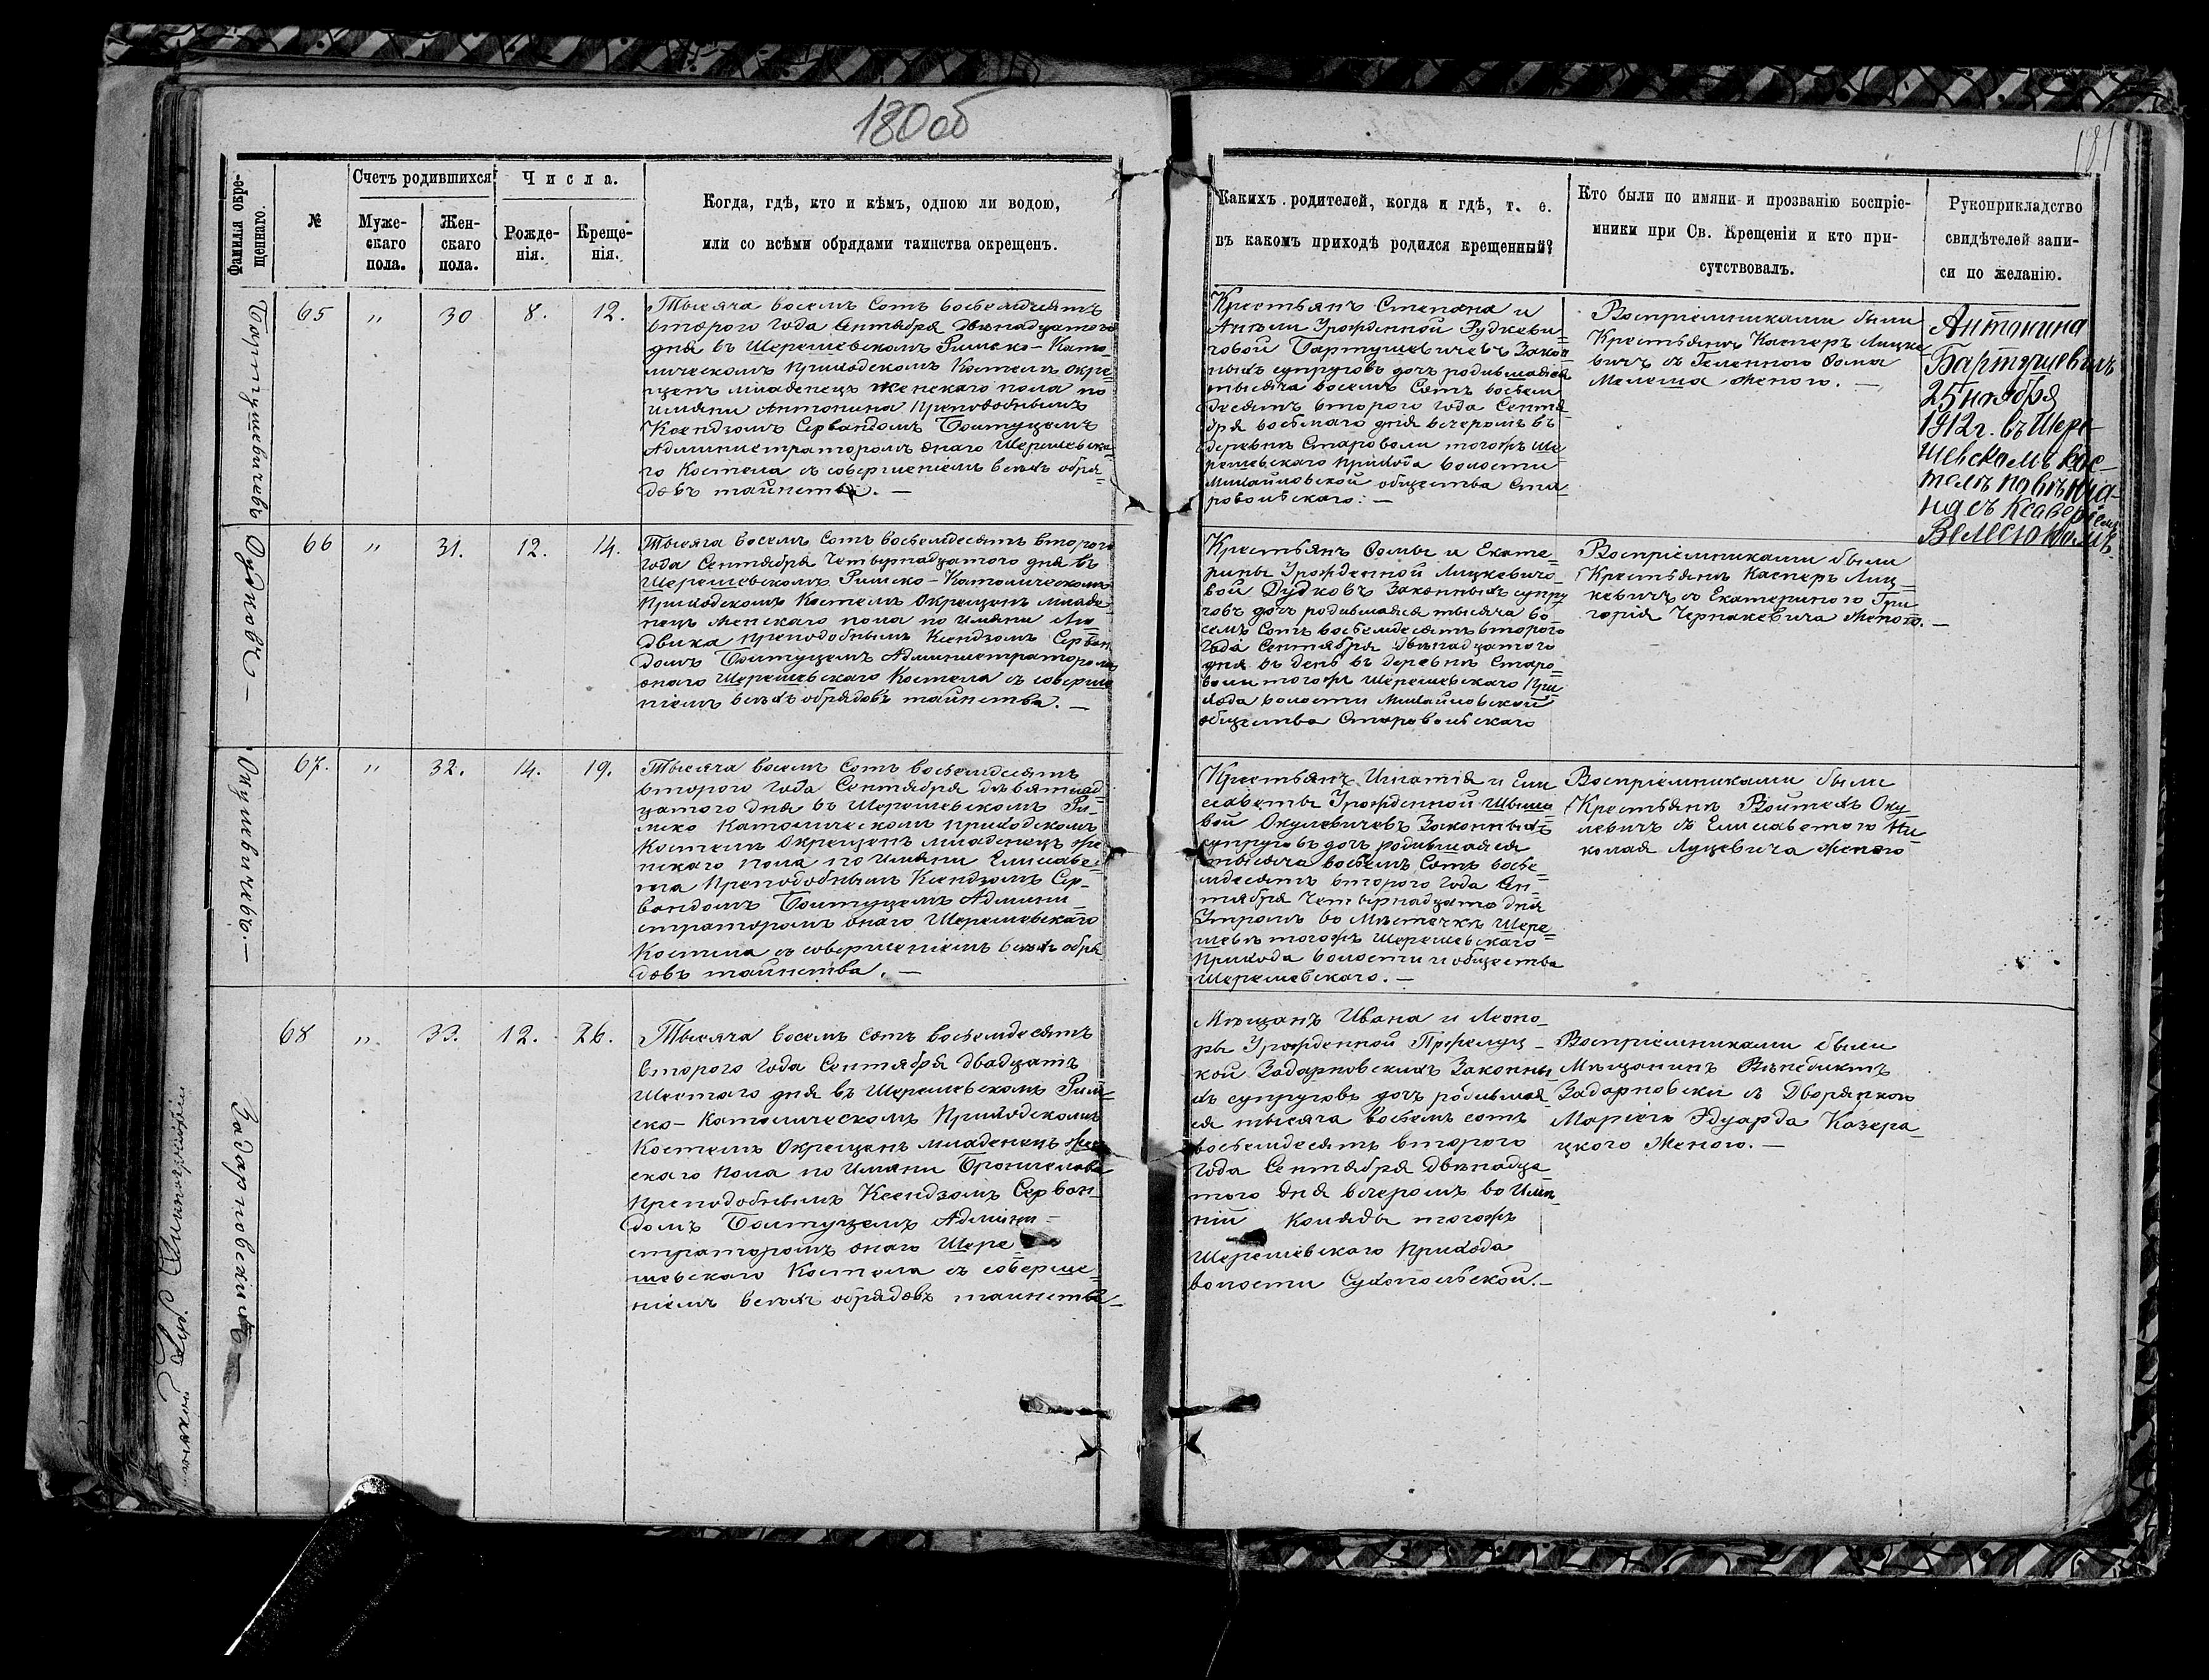 180об
181
Фамилія окре-
щеннаго.
№
Счетъ родившихся
Муже-
скаго
пола.
Жен-
скаго
пола.
Числа.
Рожде-
нія.
Креще-
нія.
Когда, гдѣ, кто и кѣмъ, одною ли водою,
или со всѣми обрядами таинства окрещенъ.
Какихъ родителей, когда и гдѣ, т. е.
въ какомъ приходѣ родился крещенный?
Кто были по имяни и прозванію воспріе-
мники при Св. Крещеніи и кто при-
сутствовалъ.
Рукоприкладство
свидѣтелей запи-
си по желанію.
Бартушевичевъ
65 " 30 8. 12.
Тысяча восемъ Сотъ восьмдесятъ
второго года Сентября двѣнадцатого
дня въ Шерешевскомъ Римско-Като-
лическомъ приходскомъ Костелѣ окре-
щенъ младенецъ женскаго пола по
имяни Антонина Преподобнымъ
Ксендзомъ Сервандомъ Болтуцемъ
Администраторомъ онаго Шерешевска-
го Костела съ совершеніемъ всѣхъ обря-
довъ таинства. —
Крестьянъ Степана и
Анѣли Урожденной Рудкеви-
човой Бартушевичевъ Закон-
ныхъ супруговъ дочь родившаяся
тысяча восемъ Сотъ восьм-
десятъ второго года Сентя-
бря восьмаго дня вечеромъ въ
деревнѣ Староволи тогожъ Ше-
решевскаго прихода волости
Михайловской общества Ста-
ровольскаго. —
Воспріемниками были
Крестьянъ Касперъ Лицке-
вичъ съ Геленною Ѳома
Мелеша женою. —
Антонина
Бартушевичъ
25 ноября
1912 г. въ Шере-
шевскомъ кос-
телѣ повѣнча-
на съ Ксаверіемъ
Велесюкомъ.
Дудковъ —
66 " 31. 12. 14.
Тысяча восемъ Сотъ восьмдесятъ второго
года Сентября Четырнадцатого дня въ
Шерешевскомъ Римско-Католическомъ
Приходскомъ Костелѣ Окрещенъ младе-
нецъ женскаго пола по имяни Лю-
двика Преподобнымъ Ксендзомъ Серван-
домъ Болтуцемъ Администраторомъ
онаго Шерешевскаго Костела съ соверше-
ніемъ всѣхъ обрядовъ таинства. —
Крестьянъ Ѳомы и Екате-
рины Урожденной Лицкевичо-
вой Дудковъ Законныхъ супру-
говъ дочь родившаяся тысяча во-
семъ Сотъ восьмдесятъ второго
года Сентября двѣнадцатого
дня въ день въ деревнѣ Старо-
воли тогожъ Шерешевскаго При-
хода волости Михайловской
общества Старовольскаго
Воспріемниками были
Крестьянъ Касперъ Лиц-
кевичъ съ Екатериною Гри-
горія Чернакевича женою. —
Окулевичевъ. —
67. " 32. 14. 19.
Тысяча восемъ Сотъ восьмдесятъ
второго года Сентября девятнад-
цатого дня въ Шерешевскомъ Ри-
мско Католическомъ приходскомъ
Костелѣ Окрещенъ младенецъ же-
нскаго пола по имяни Елисаве-
та Преподобнымъ Ксендзомъ Сер-
вандомъ Болтуцемъ Админи-
страторомъ онаго Шерешевскаго
Костела съ совершеніемъ всѣхъ обря-
довъ таинства. —
Крестьянъ Игнатія и Ели-
саветы Урожденной
вой Окулевичевъ Законныхъ
супруговъ дочь родившаяся
тысяча восьемъ Сотъ восьм-
мдесятъ второго года Сен-
тября Четырнадцато дня
Утромъ во Мѣстечкѣ Шере-
шевѣ тогожъ Шерешевскаго
Прихода волости и общества
Шерешевскаго. —
Воспріемниками были
Крестьянъ Войтехъ Оку-
левичъ съ Елисаветою Ни-
колая Луцевича женою
Задарновскихъ —
68 " 33. 12. 26.
Тысяча восемъ сотъ восьмдесятъ
второго года Сентября двадцатъ
Шестого дня въ Шерешевскомъ Рим-
ско-Католическомъ Приходскомъ
Костелѣ Окрещенъ младенецъ жен-
скаго пола по Имяни Брониславa
Преподобнымъ Ксендзомъ Серван-
домъ Болтуцемъ Админи-
страторомъ онаго Шере-
шевскаго Костела съ соверше-
ніемъ всѣхъ обрядовъ таинства —
Мѣщанъ Ивана и Леоно-
ры Урожденной
кой Задарновскихъ Законны-
хъ супруговъ дочь родившая-
ся тысяча восьемъ сотъ
восьмдесятъ второго
года Сентября двѣнадца-
того дня вечеромъ во Имѣ-
ніи Коляды тогожъ
Шерешевскаго Прихода
волости Сухопольской. —
Воспріемниками были
Мѣщанинъ Венедиктъ
Задарновски съ Дворянкою
Маріею Эдуарда Казера-
цкого Женою. —